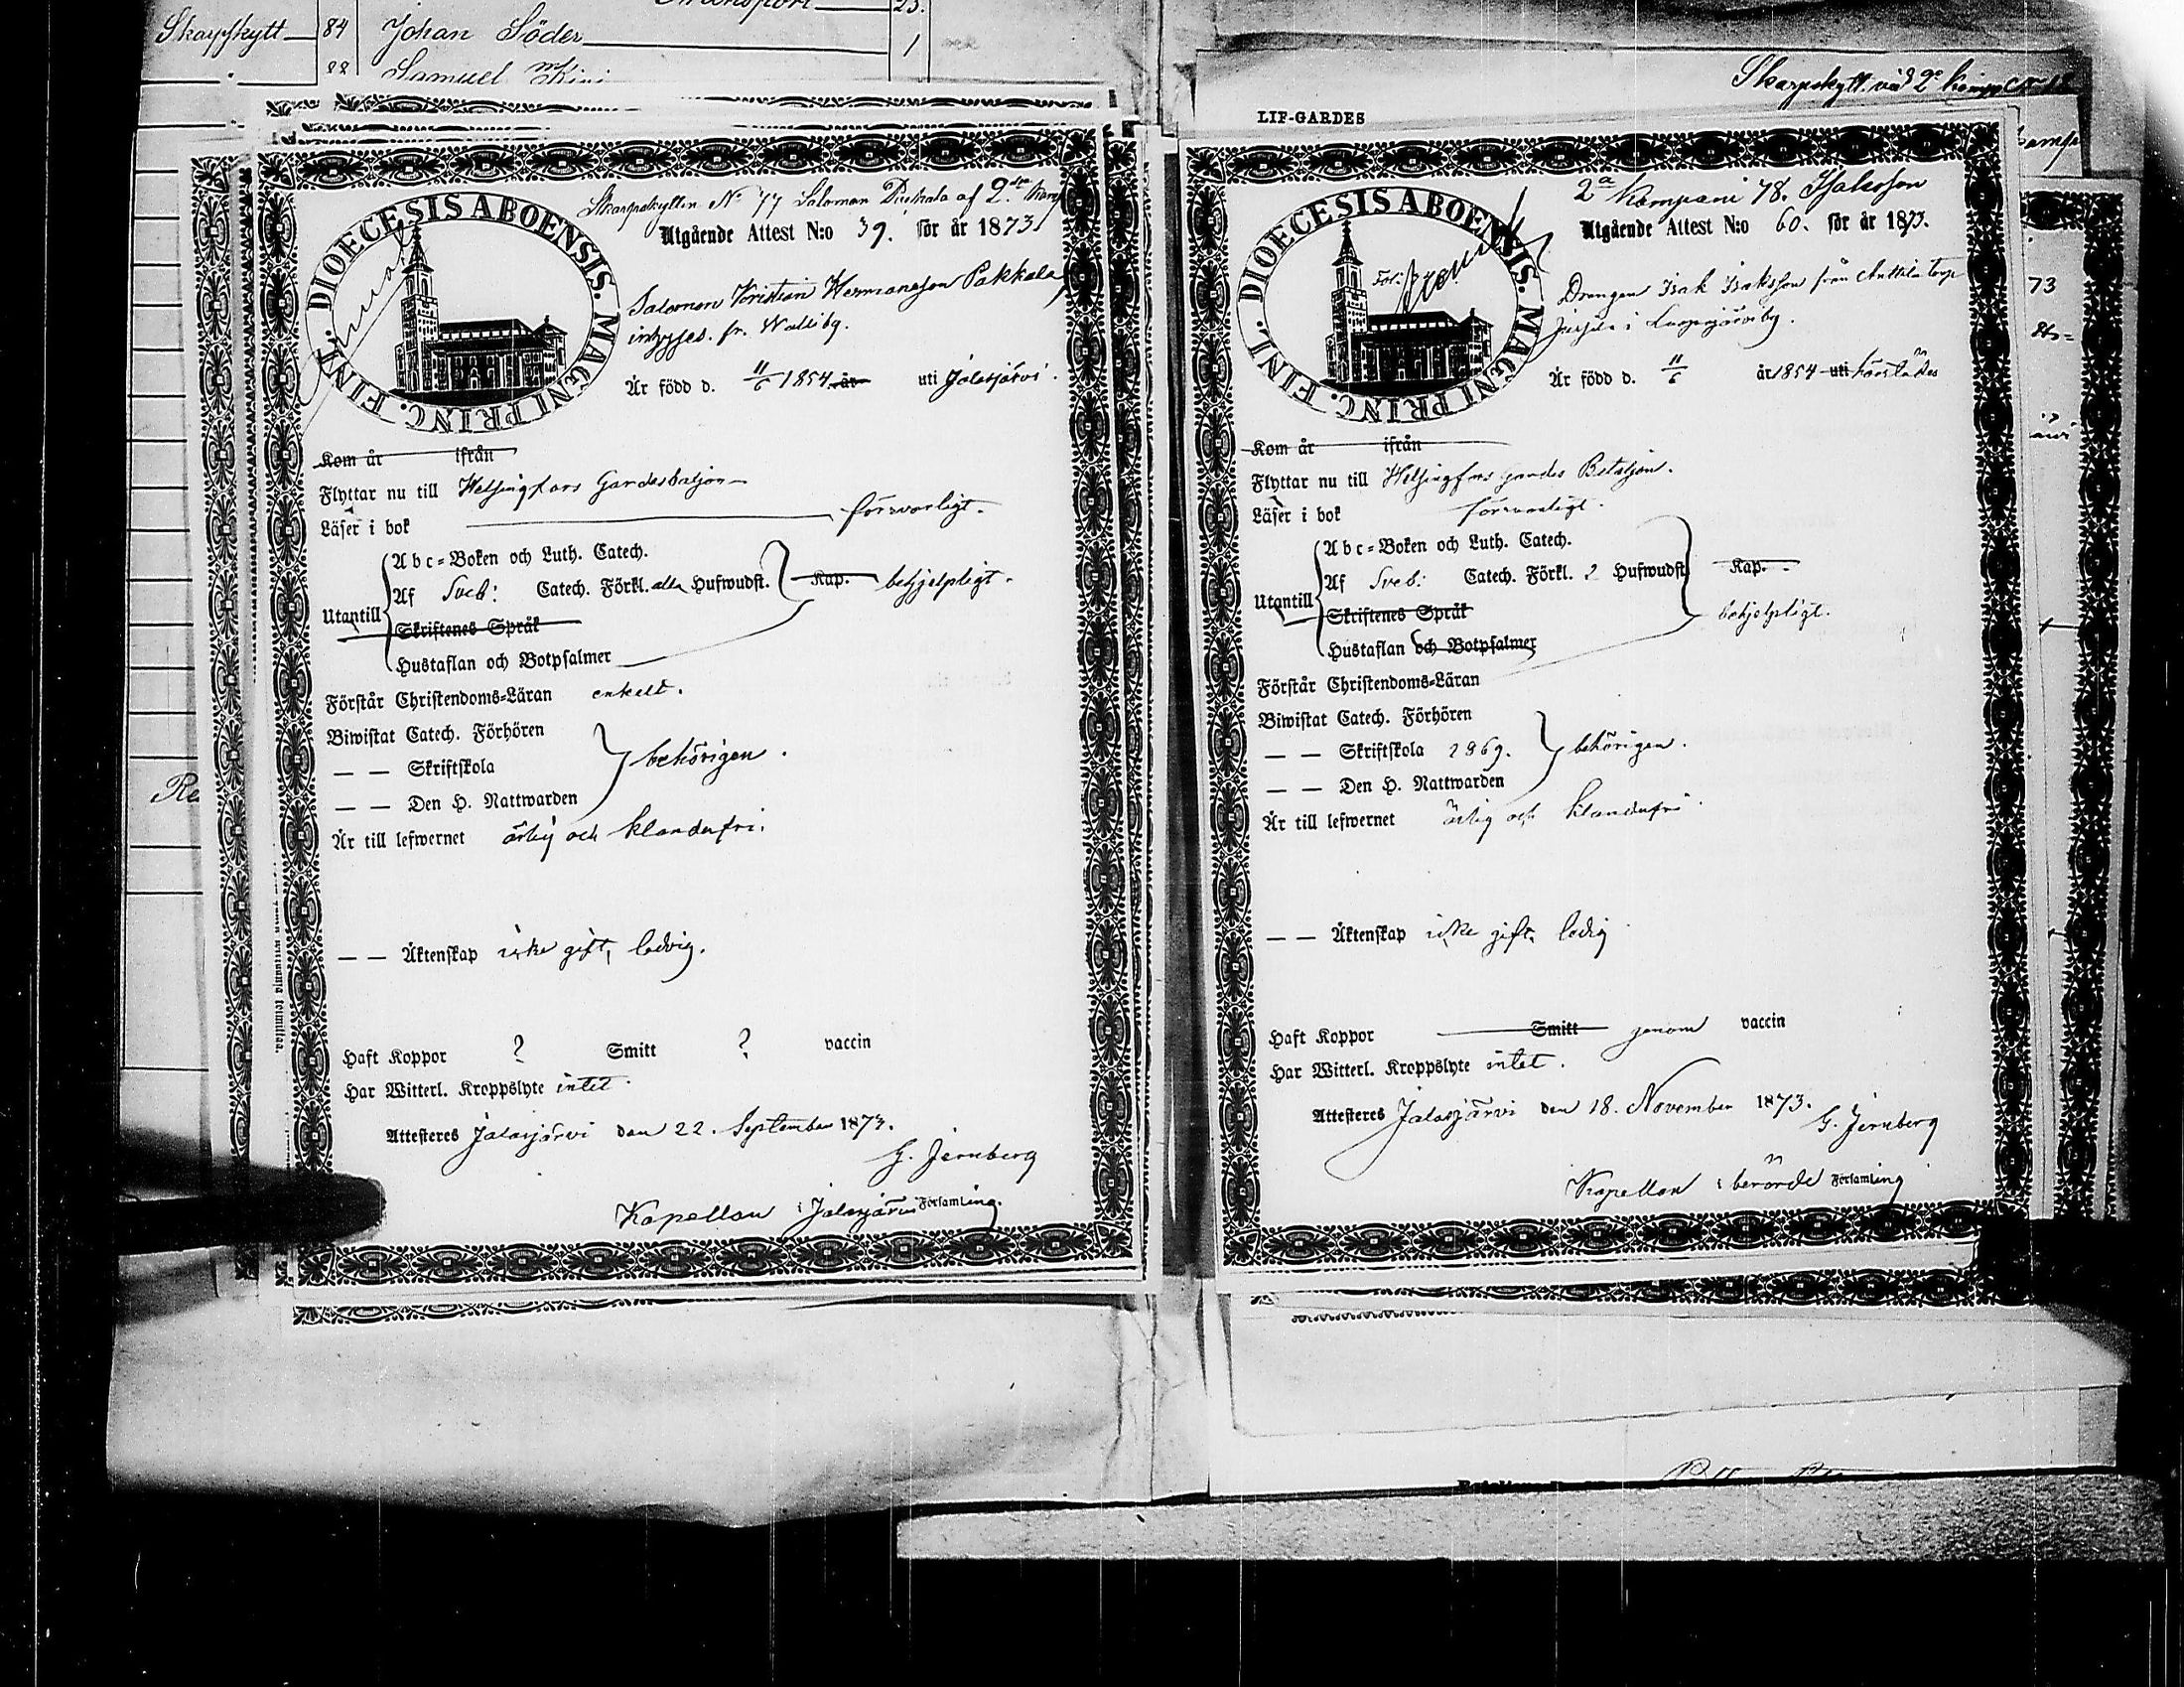 Skarpskytt 84 Johan Söder 1
Samuel
DIOECESIS ABOENSIS. MAGNI PRINC. FINL.
Skarpskytten No 77 Salomon af 2dra Komp
Utgående Attest N:o 39. för år 1873
Salomon Kristian Hermansson Pakkala
inhyses. fr.
Är född d. 11/6 1854 år uti Jalasjärvi.
Kom år ifrån
Flyttar nu till Helsingfors Gardesbatjon
Läser i bok försvarligt.
Abc-Boken och Luth. Catech.
Af Sveb: Catech. Förkl. alla Hufwudst. Kap. behjelpligt.
Utantill
Skriftenes Språk
Hustaflan och Botpsalmer
Förstår Christendoms-Läran enkelt.
Biwistat Catech. Förhören
— — Skriftskola behörigen.
— — Den H. Nattwarden
Är till lefwernet ärlig och klanderfri.
— — Äktenskap icke gift, ledig.
Haft Koppor ? Smitt ? vaccin
Har Witterl. Kroppslyte intet.
Attesteres Jalasjärvi den 22. September 1873.
G. Jernberg
Kapellan i Jalasjärvi Församling.
Skarpskytt vid 2a
LIF-GARDES
DIOECESIS ABOENSIS. MAGNI PRINC. FINL.
2a Kompani 78. Isaksson
Utgående Attest N:o 60. för år 1873.
Drengen Isak Isaksson från Anttila torp
i
Är född d. 11/6 år 1854 uti härstädes
Kom år ifrån
Flyttar nu till Helsingfors Gardes Bataljon.
Läser i bok försvarligt.
Abc-Boken och Luth. Catech.
Af Sveb: Catech. Förkl. 2 Hufwudst Kap.
Utantill
Skriftenes Språk behjelpligt.
Hustaflan och Botpsalmer
Förstår Christendoms-Läran
Biwistat Catech. Förhören
— — Skriftskola 1869. behörigen.
— — Den H. Nattwarden
Är till lefwernet ärlig och klanderfri
— — Äktenskap icke gift, ledig
Haft Koppor Smitt genom vaccin
Har Witterl. Kroppslyte intet.
Attesteres Jalasjärvi den 18. November 1873.
G. Jernberg
Kapellan i berörde Församling
73